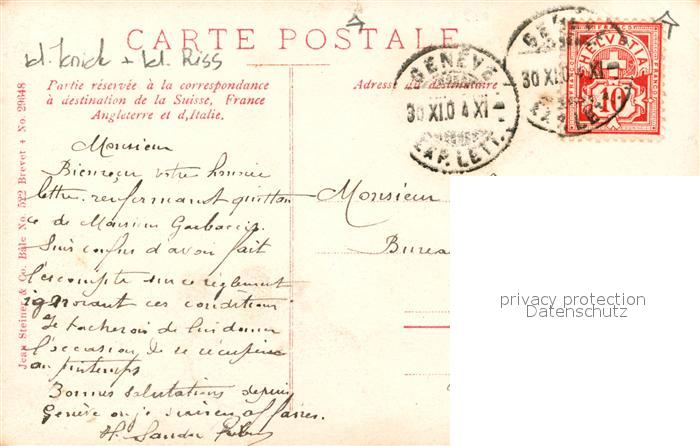 kl. Knick + kl. Riss
CARTE POSTALE
Partie réservée à la correspondance
à destination de la Suisse, France
Angleterre et d,Italie.
Adresse du destinataire
GENÈVE
30 XI.0 4 XI
EXP. LETT.
30 XI.0 XI
EXP. LE
HELVETIA
10
Jean Steiner & Co. Bâle No. 522 Brevet + No. 29648
Monsieur
Bien reçu votre honorée
lettre renfermant quittan
ce de Monsieur
Suis confus d'avoir fait
l'escompte sur ce règlement
ignorant ces conditions
Je tacherai de lui donner
l'occasion de se récupérer
au printemps
Bonnes salutations depuis
Genève où je suis en affaires.
H. Sandoz
Monsieur
Burea
privacy protection
Datenschutz